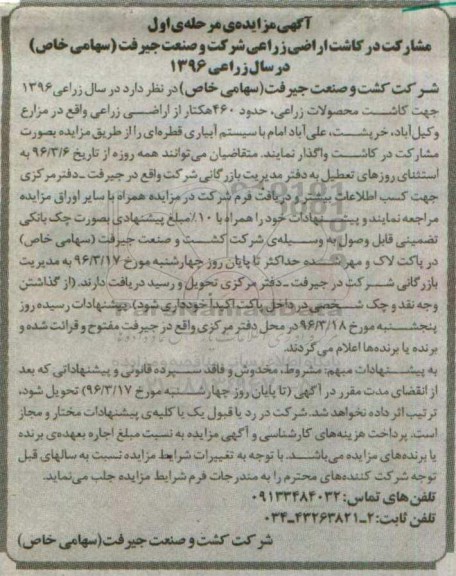 آگهی مزایده‌ی مرحله‌ی اول
مشارکت در کاشت اراضی زراعی شرکت و صنعت جیرفت (سهامی خاص)
در سال زراعی ۱۳۹۶
شرکت کشت و صنعت جیرفت (سهامی خاص) در نظر دارد در سال زراعی ۱۳۹۶
جهت کاشت محصولات زراعی، حدود ۴۶۰ هکتار از اراضی زراعی واقع در مزارع
وکیل‌آباد، خرپشت، علی‌آباد امام با سیستم آبیاری قطره‌ای را از طریق مزایده بصورت
مشارکت در کاشت واگذار نمایند. متقاضیان می‌توانند همه روزه از تاریخ ۹۶/۳/۶ به
استثنای روزهای تعطیل به دفتر مدیریت بازرگانی شرکت واقع در جیرفت ـ دفتر مرکزی
جهت کسب اطلاعات بیشتر و دریافت فرم شرکت در مزایده همراه با سایر اوراق مزایده
مراجعه نمایند و پیشنهادات خود را همراه با ۱۰٪ مبلغ پیشنهادی بصورت چک بانکی
تضمینی قابل وصول به وسیله‌ی شرکت کشت و صنعت جیرفت (سهامی خاص)
در پاکت لاک و مهر شده حداکثر تا پایان روز چهارشنبه مورخ ۹۶/۳/۱۷ به مدیریت
بازرگانی شرکت در جیرفت ـ دفتر مرکزی تحویل و رسید دریافت دارند. (از گذاشتن
وجه نقد و چک شخصی در داخل پاکت اکیداً خودداری شود) پیشنهادات رسیده روز
پنجشنبه مورخ ۹۶/۳/۱۸ در محل دفتر مرکزی واقع در جیرفت مفتوح و قرائت شده و
برنده یا برنده‌ها اعلام می‌گردند.
به پیشنهادات مبهم، مشروط، مخدوش و فاقد سپرده قانونی و پیشنهاداتی که بعد
از انقضای مدت مقرر در آگهی (تا پایان روز چهارشنبه مورخ ۹۶/۳/۱۷) تحویل شود،
ترتیب اثر داده نخواهد شد. شرکت در رد یا قبول یک یا کلیه‌ی پیشنهادات مختار و مجاز
است. پرداخت هزینه‌های کارشناسی و آگهی مزایده به نسبت مبلغ اجاره بعهده‌ی برنده
یا برنده‌های مزایده می‌باشد. با توجه به تغییرات شرایط مزایده نسبت به سالهای قبل
توجه شرکت کننده‌های محترم را به مندرجات فرم شرایط مزایده جلب می‌نماید.
تلفن‌های تماس: ۰۹۱۳۳۴۸۴۰۳۲
تلفن ثابت: ۲ـ۴۳۲۶۳۸۲۱ـ۰۳۴
شرکت کشت و صنعت جیرفت (سهامی خاص)